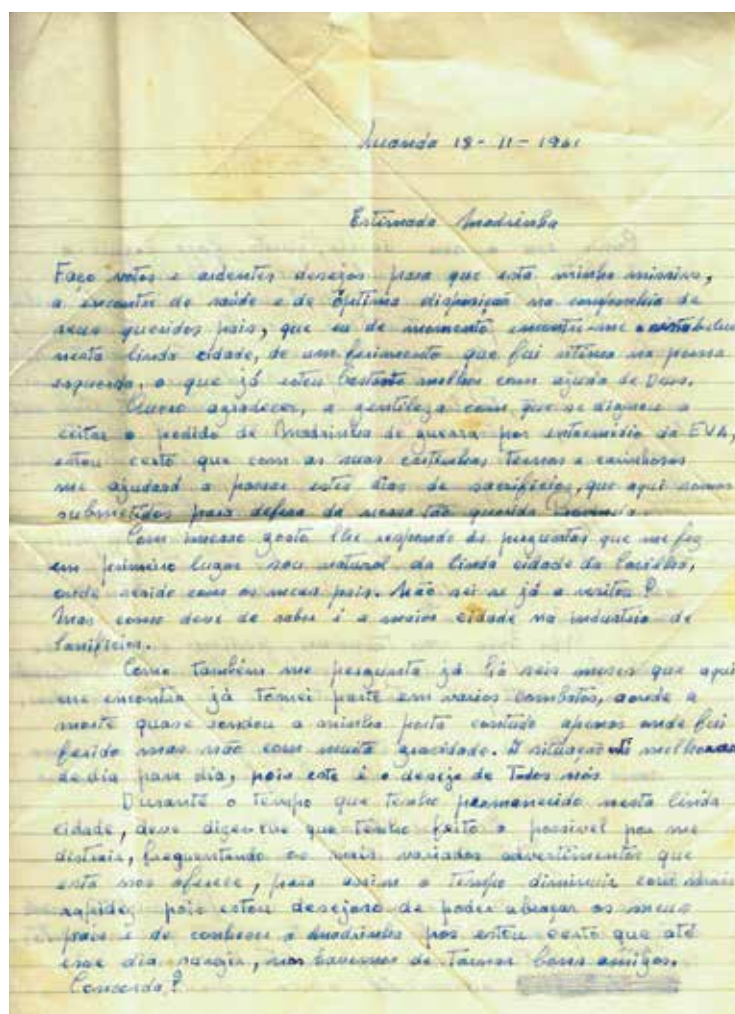 Luanda 18-11-1961
Estimada Madrinha
Faço votos e ardentes desejos para que esta minha missiva,
a encontre de saúde e de óptima disposição na companhia de
seus queridos pais, que eu de momento encontro-me a
nesta linda cidade, de um ferimento que fui vítima na perna
esquerda, o que já estou bastante melhor com ajuda de Deus.
Quero agradecer, a gentileza com que se dignou a
ceitar o pedido de Madrinha de guerra por intermédio da EVA,
estou certo que com as suas cartinhas ternas e carinhosas
me ajudará a passar estes dias de sacrifícios, que aqui somos
submetidos para defesa da nossa tão querida Provincia.
Com imenso gosto lhe respondo ás perguntas que me fez
em primeiro lugar sou natural da linda cidade da Covilhã,
onde resido com os meus pais. Não sei se já a visitou?
Mas como deve de saber é a maior cidade na industria de
lanificios.
Como também me pergunta já há seis meses que aqui
me encontro já tomei parte em varios combates, aonde a
morte quase rondou a minha porta contudo apenas onde fui
ferido mas não com muita gravidade. A situação melhorando
de dia para dia, pois este é o desejo de todos nós
Durante o tempo que tenho permanecido nesta linda
cidade, deve dizer-lhe que tenho feito o possivel por me
distrair, frequentando os mais variados advertimentos que
esta nos oferece, para assim o tempo diminuir com mais
rapidez pois estou desejoso de poder abraçar os meus
pais e de conhecer a Madrinha pois estou certo que até
esse dia surgir, nos havemos de tornar bons amigos.
Concorda?